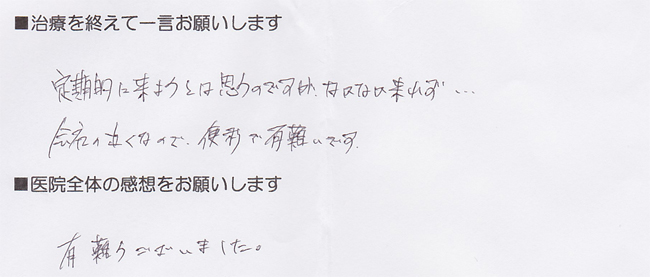 ■治療を終えて一言お願いします
定期的に来ようとは思うのですが、なかなか来れず…
会社の近くなので、便利で有難いです。
■医院全体の感想をお願いします
有難うございました。